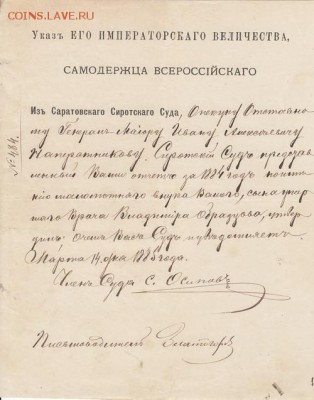 COINS.LAVE.RU
Указъ ЕГО ИМПЕРАТОРСКАГО ВЕЛИЧЕСТВА,
САМОДЕРЖЦА ВСЕРОССІЙСКАГО
Изъ Саратовскаго Сиротскаго Суда, Опекуну Отставно-
му Генералъ Маіору Ивану
Сиротскій Судъ представ-
ленный Вами отчетъ за 1884 годъ по
малолѣтняго внука Вашего, сына умер-
шаго Врача Владиміра Образцова, утвер-
дилъ: о чемъ Васъ Судъ и увѣдомляетъ.
Марта 14 дня 1885 года.
Членъ Суда С. Осиповъ
Письмоводитель
№ 484.